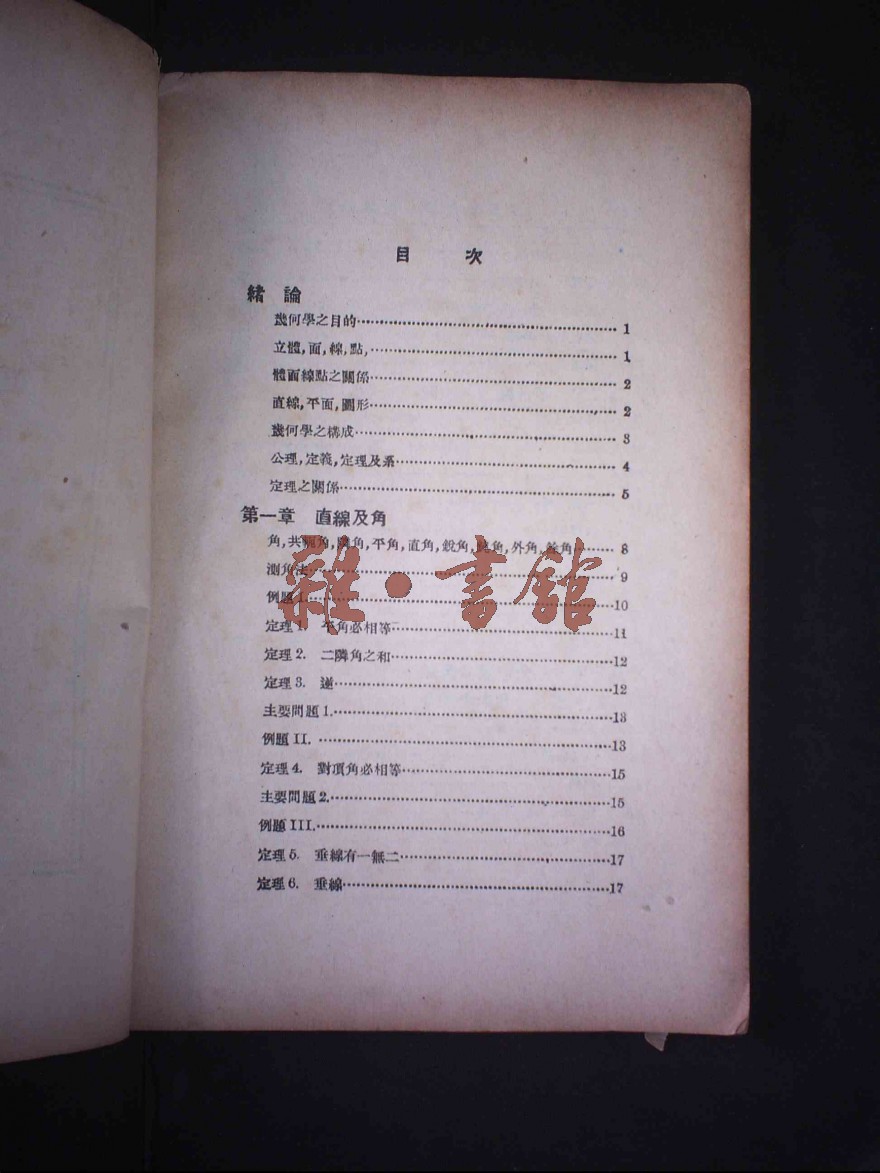 目 次
緒 論
幾何學之目的…………1
立體,面,線,點,…………1
體面線點之關係…………2
直線,平面,圓形…………2
幾何學之構成…………3
公理,定義,定理及系…………4
定理之關係…………5
第一章 直線及角
角,共軛角,隣角,平角,直角,銳角,鈍角,外角,餘角…………8
測角法…………9
例題 I.…………10
定理1. 平角必相等…………11
定理2. 二隣角之和…………12
定理3. 逆…………12
主要問題1.…………13
例題 II.…………13
定理4. 對頂角必相等…………15
主要問題2.…………15
例題 III.…………16
定理5. 垂線有一無二…………17
定理6. 垂線…………17
雜·書館